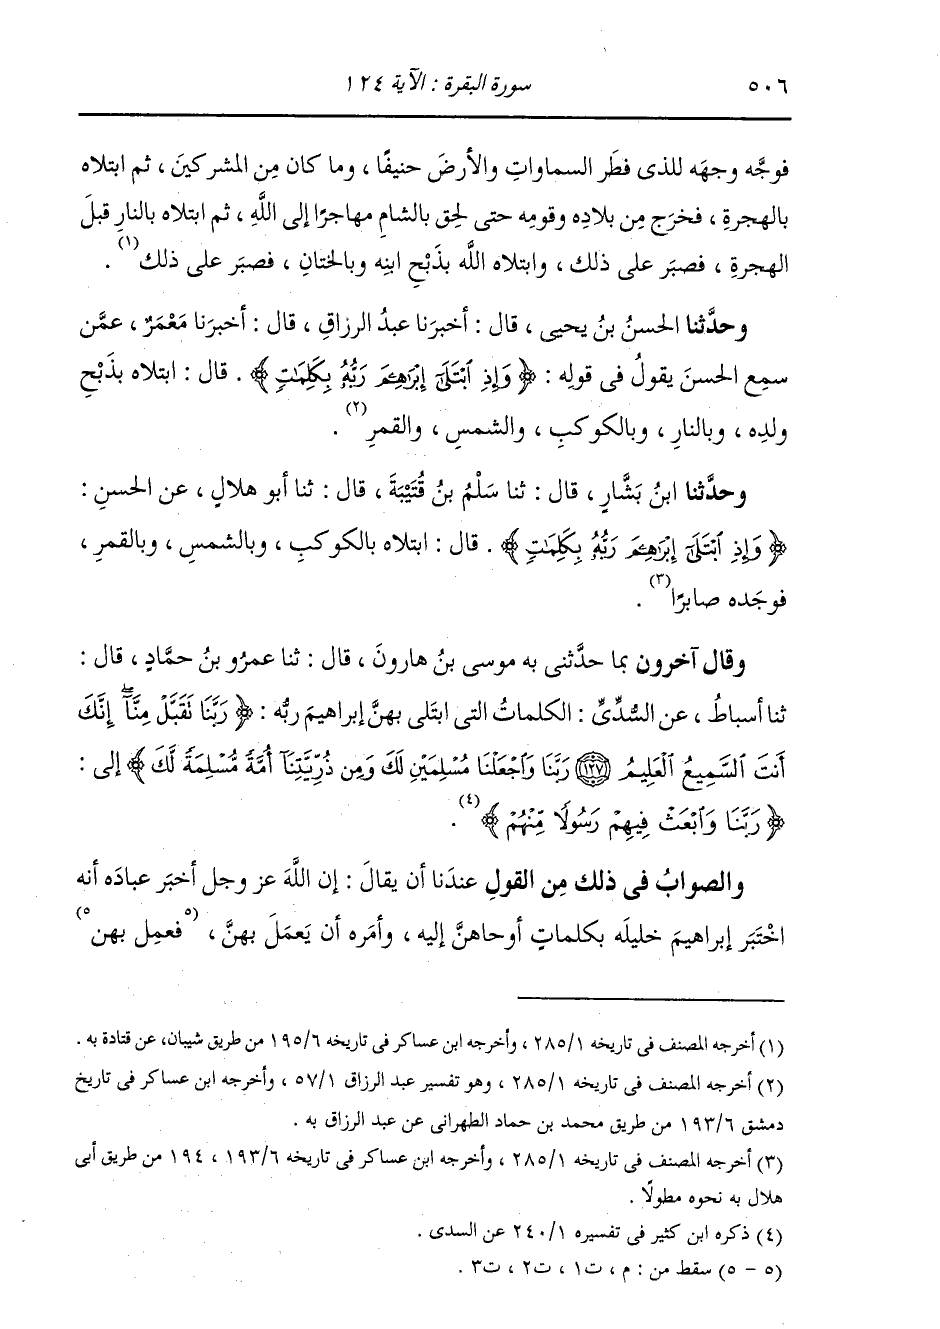 ٥٠٦ سورة البقرة : الآية ١٢٤
فوجَّه وجهَه للذى فطَر السماواتِ والأرضَ حنيفًا ، وما كان مِن المشركينَ ، ثم ابتلاه
بالهجرةِ ، فخرَج مِن بلادِه وقومِه حتى لحِق بالشامِ مهاجرًا إلى اللَّهِ ، ثم ابتلاه بالنارِ قبلَ
الهجرةِ ، فصبَر على ذلك ، وابتلاه اللَّه بذَبْحِ ابنِه وبالختانِ ، فصبَر على ذلك(١) .
وحدَّثنا الحسنُ بنُ يحيى ، قال : أخبرَنا عبدُ الرزاقِ ، قال : أخبرَنا مَعْمَرٌ ، عمَّن
سمِع الحسنَ يقولُ فى قولِه : ﴿ وَإِذِ ٱبْتَلَىٰٓ إِبْرَٰهِـۧمَ رَبُّهُۥ بِكَلِمَـٰتٍ ﴾ . قال : ابتلاه بذَبْحِ
ولدِه ، وبالنارِ ، وبالكوكبِ ، والشمسِ ، والقمرِ(٢) .
وحدَّثنا ابنُ بَشَّارٍ ، قال : ثنا سَلْمُ بنُ قُتَيْبَةَ ، قال : ثنا أبو هلالٍ ، عن الحسنِ :
﴿ وَإِذِ ٱبْتَلَىٰٓ إِبْرَٰهِـۧمَ رَبُّهُۥ بِكَلِمَـٰتٍ ﴾ . قال : ابتلاه بالكوكبِ ، وبالشمسِ ، وبالقمرِ ،
فوجَده صابرًا(٣) .
وقال آخرون بما حدَّثنى به موسى بنُ هارونَ ، قال : ثنا عمرُو بنُ حمَّادٍ ، قال :
ثنا أسباطُ ، عن السُّدِّىِّ : الكلماتُ التى ابتَلى بهنَّ إبراهيمَ ربُّه : ﴿ رَبَّنَا تَقَبَّلْ مِنَّآ ۖ إِنَّكَ
أَنتَ ٱلسَّمِيعُ ٱلْعَلِيمُ ﴿١٢٧﴾ رَبَّنَا وَٱجْعَلْنَا مُسْلِمَيْنِ لَكَ وَمِن ذُرِّيَّتِنَآ أُمَّةً مُّسْلِمَةً لَّكَ ﴾ إلى :
﴿ رَبَّنَا وَٱبْعَثْ فِيهِمْ رَسُولًا مِّنْهُمْ ﴾(٤) .
والصوابُ فى ذلك مِن القولِ عندَنا أن يقالَ : إن اللَّهَ عز وجل أخبَر عبادَه أنه
اخْتَبَر إبراهيمَ خليلَه بكلماتٍ أوحاهنَّ إليه ، وأمَره أن يَعمَلَ بهنَّ ، (٥فعمِل بهن٥)
(١) أخرجه المصنف فى تاريخه ٢٨٥/١ ، وأخرجه ابن عساكر فى تاريخه ١٩٥/٦ من طريق شيبان، عن قتادة به .
(٢) أخرجه المصنف فى تاريخه ٢٨٥/١ ، وهو تفسير عبد الرزاق ٥٧/١ ، وأخرجه ابن عساكر فى تاريخ
دمشق ١٩٣/٦ من طريق محمد بن حماد الطهرانى عن عبد الرزاق به .
(٣) أخرجه المصنف فى تاريخه ٢٨٥/١ ، وأخرجه ابن عساكر فى تاريخه ١٩٣/٦ ، ١٩٤ من طريق أبى
هلال به نحوه مطولًا .
(٤) ذكره ابن كثير فى تفسيره ٢٤٠/١ عن السدى .
(٥ - ٥) سقط من : م ، ت١ ، ت٢ ، ت٣ .